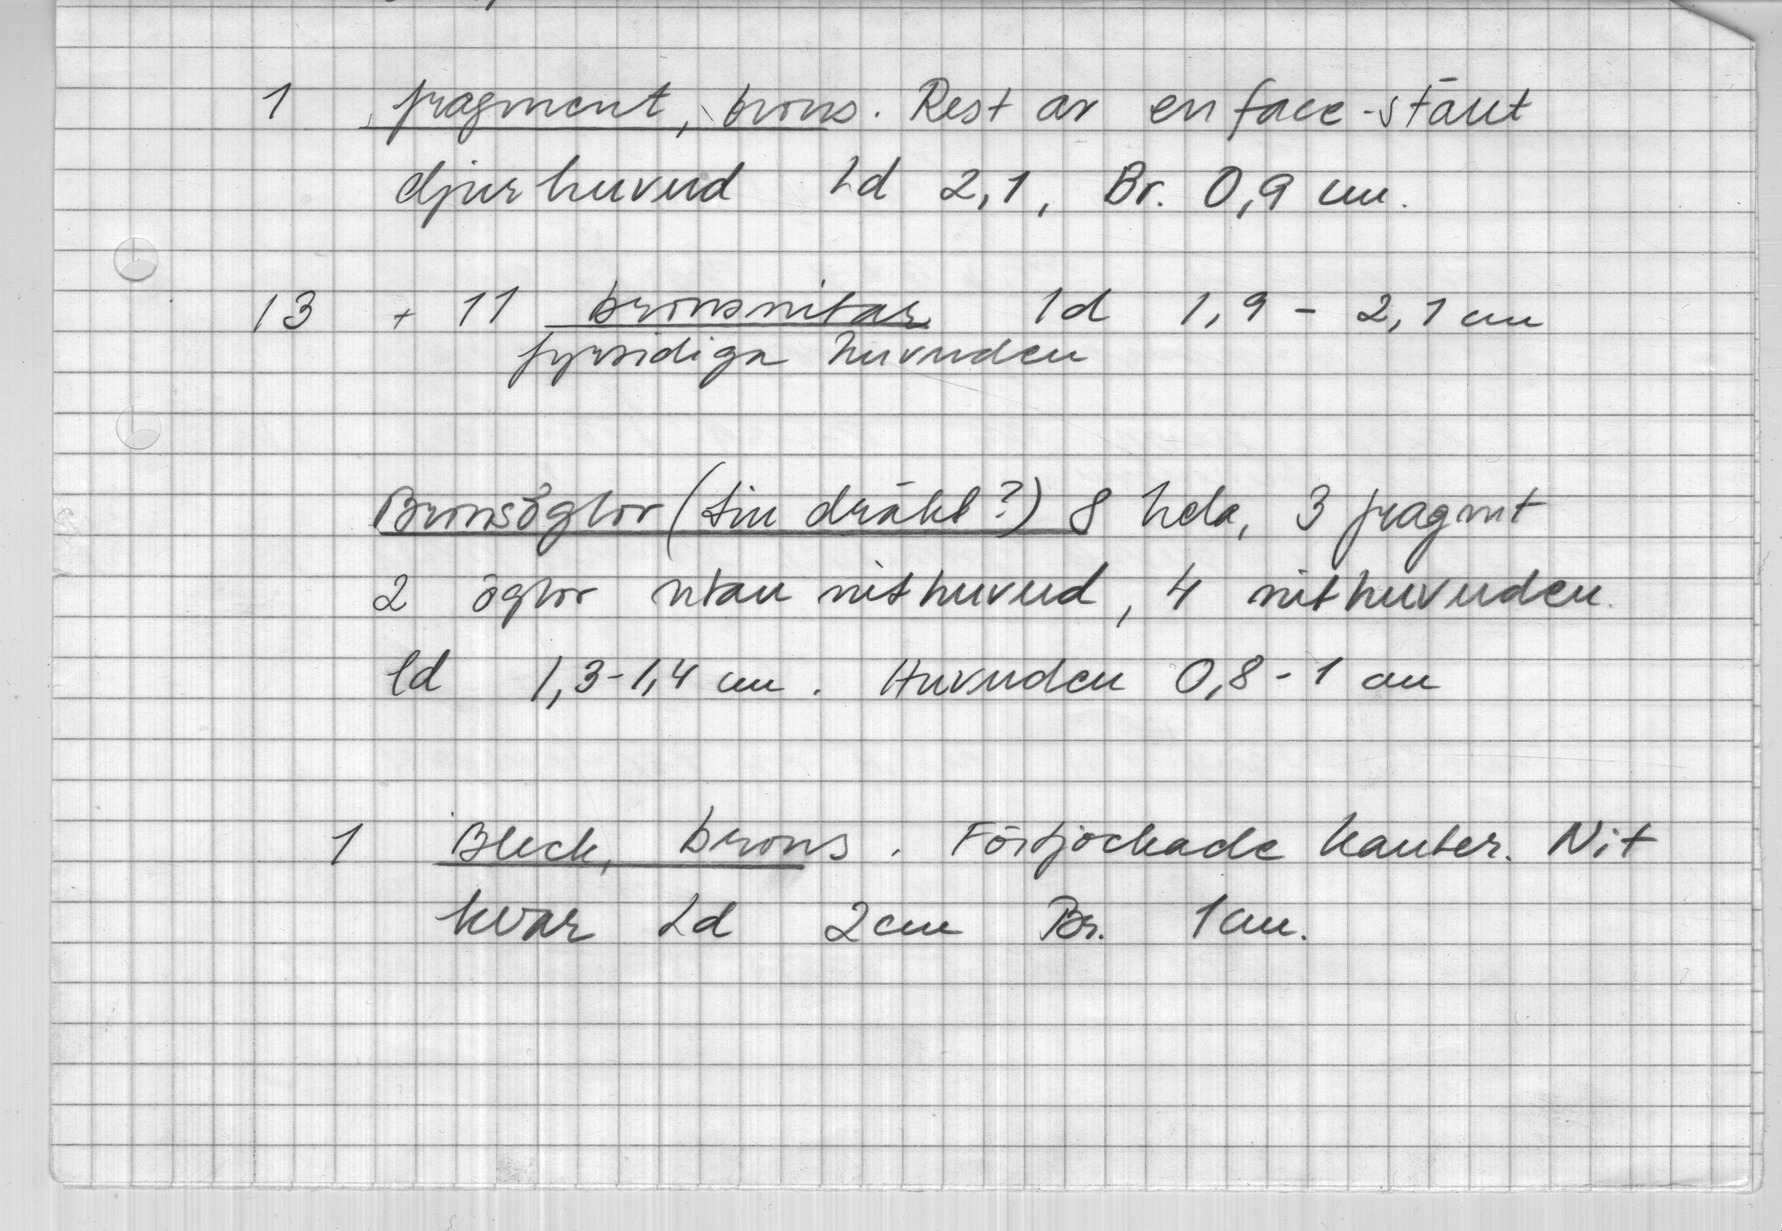 1 fragment, brons. Rest av en face-ställt
djurhuvud Ld 2,1, Br. 0,9 cm.
13 + 11 bronsnitar ld 1,9 - 2,1 cm
fyrsidiga huvuden
Bronsöglor ( dräkt?) 8 hela, 3 fragmt
2 öglor utan nithuvud, 4 nithuvuden.
ld 1,3-1,4 cm. Huvuden 0,8-1 cm
1 Bleck, brons. Förtjockade kanter. Nit
kvar Ld 2cm Br. 1cm.